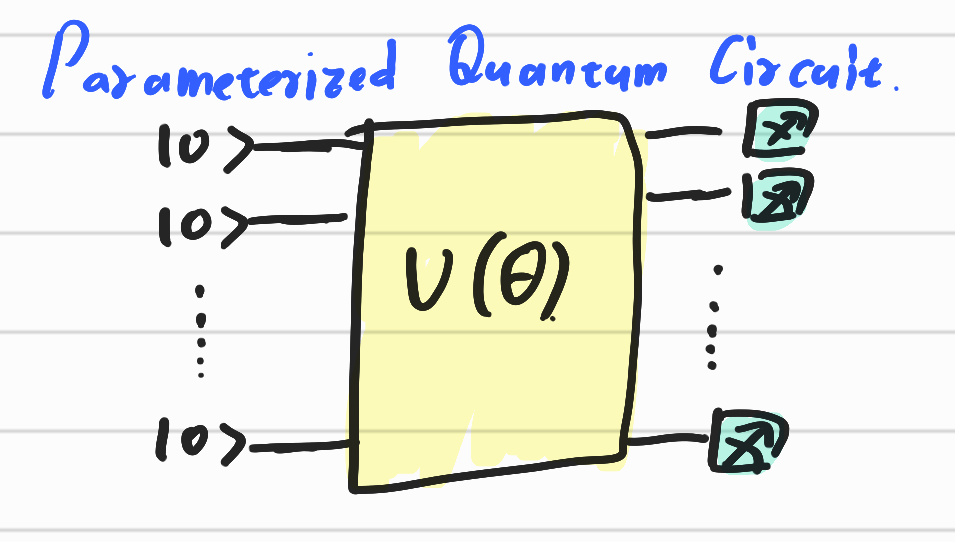 Parameterized Quantum Circuit.
|0>
|0>
U(θ).
|0>